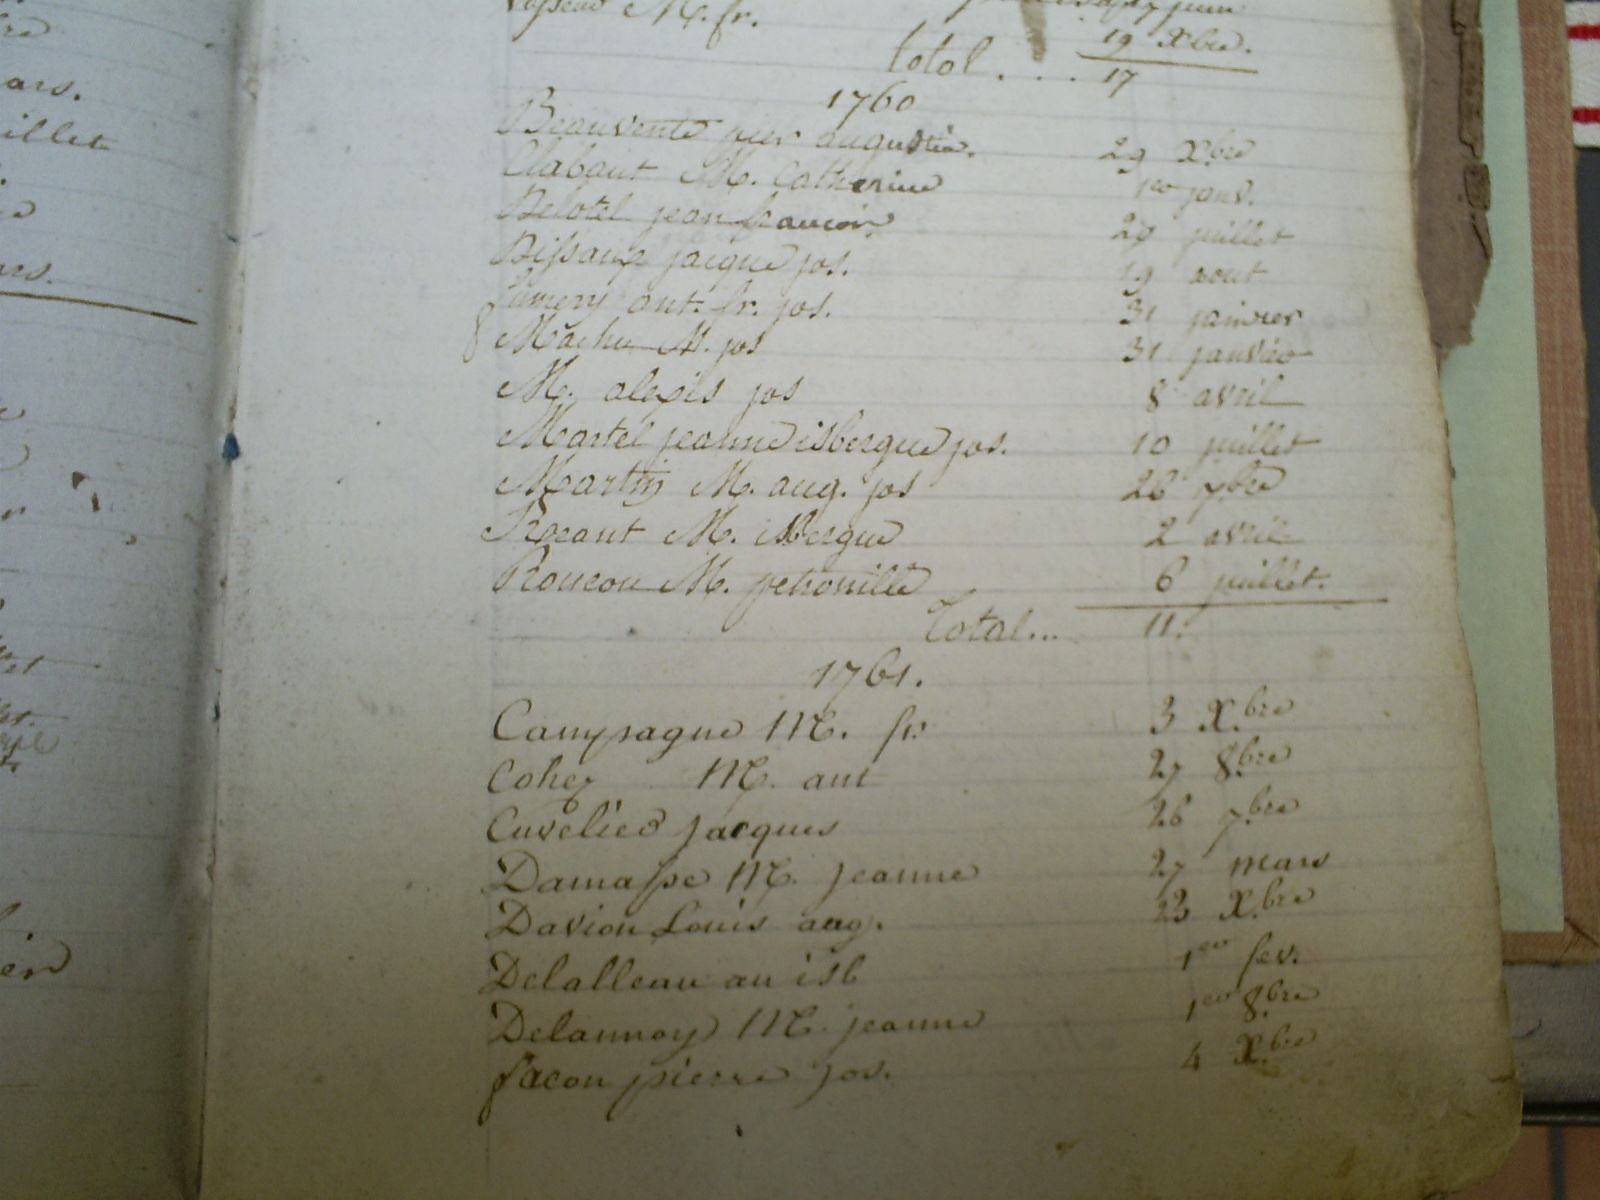 M. fr.
19 Xbre.
total . . . . 17
1760
Beauvente pier augustin. 29 Xbre
Clabaut M. Catherine 1er janv.
Belotel jean francois 29 juillet
Bissaux jacque jos. 19 aout
ant. fr. jos. 31 jainvier
8 Machu M. jos 31 janvier
M. alexis jos 8 avril
Martel jeanne isbergue jos. 10 juillet
Martin M. aug. jos 26 7bre
M. isbergue 2 avril
Roucou M. petronille 6 juillet.
Total... 11.
1761.
Campagne M. fr. 3 X.bre
Cohez M. ant 27 8.bre
Cuvelier Jacques 26 7.bre
Damasse M. Jeanne 27 mars
Davion Louis aug. 23 X.bre
Delalleau an isb 1er fev.
Delannoy M. jeanne 1er 8.bre
facon pierre Jos. 4 X.bre
ars.
illet